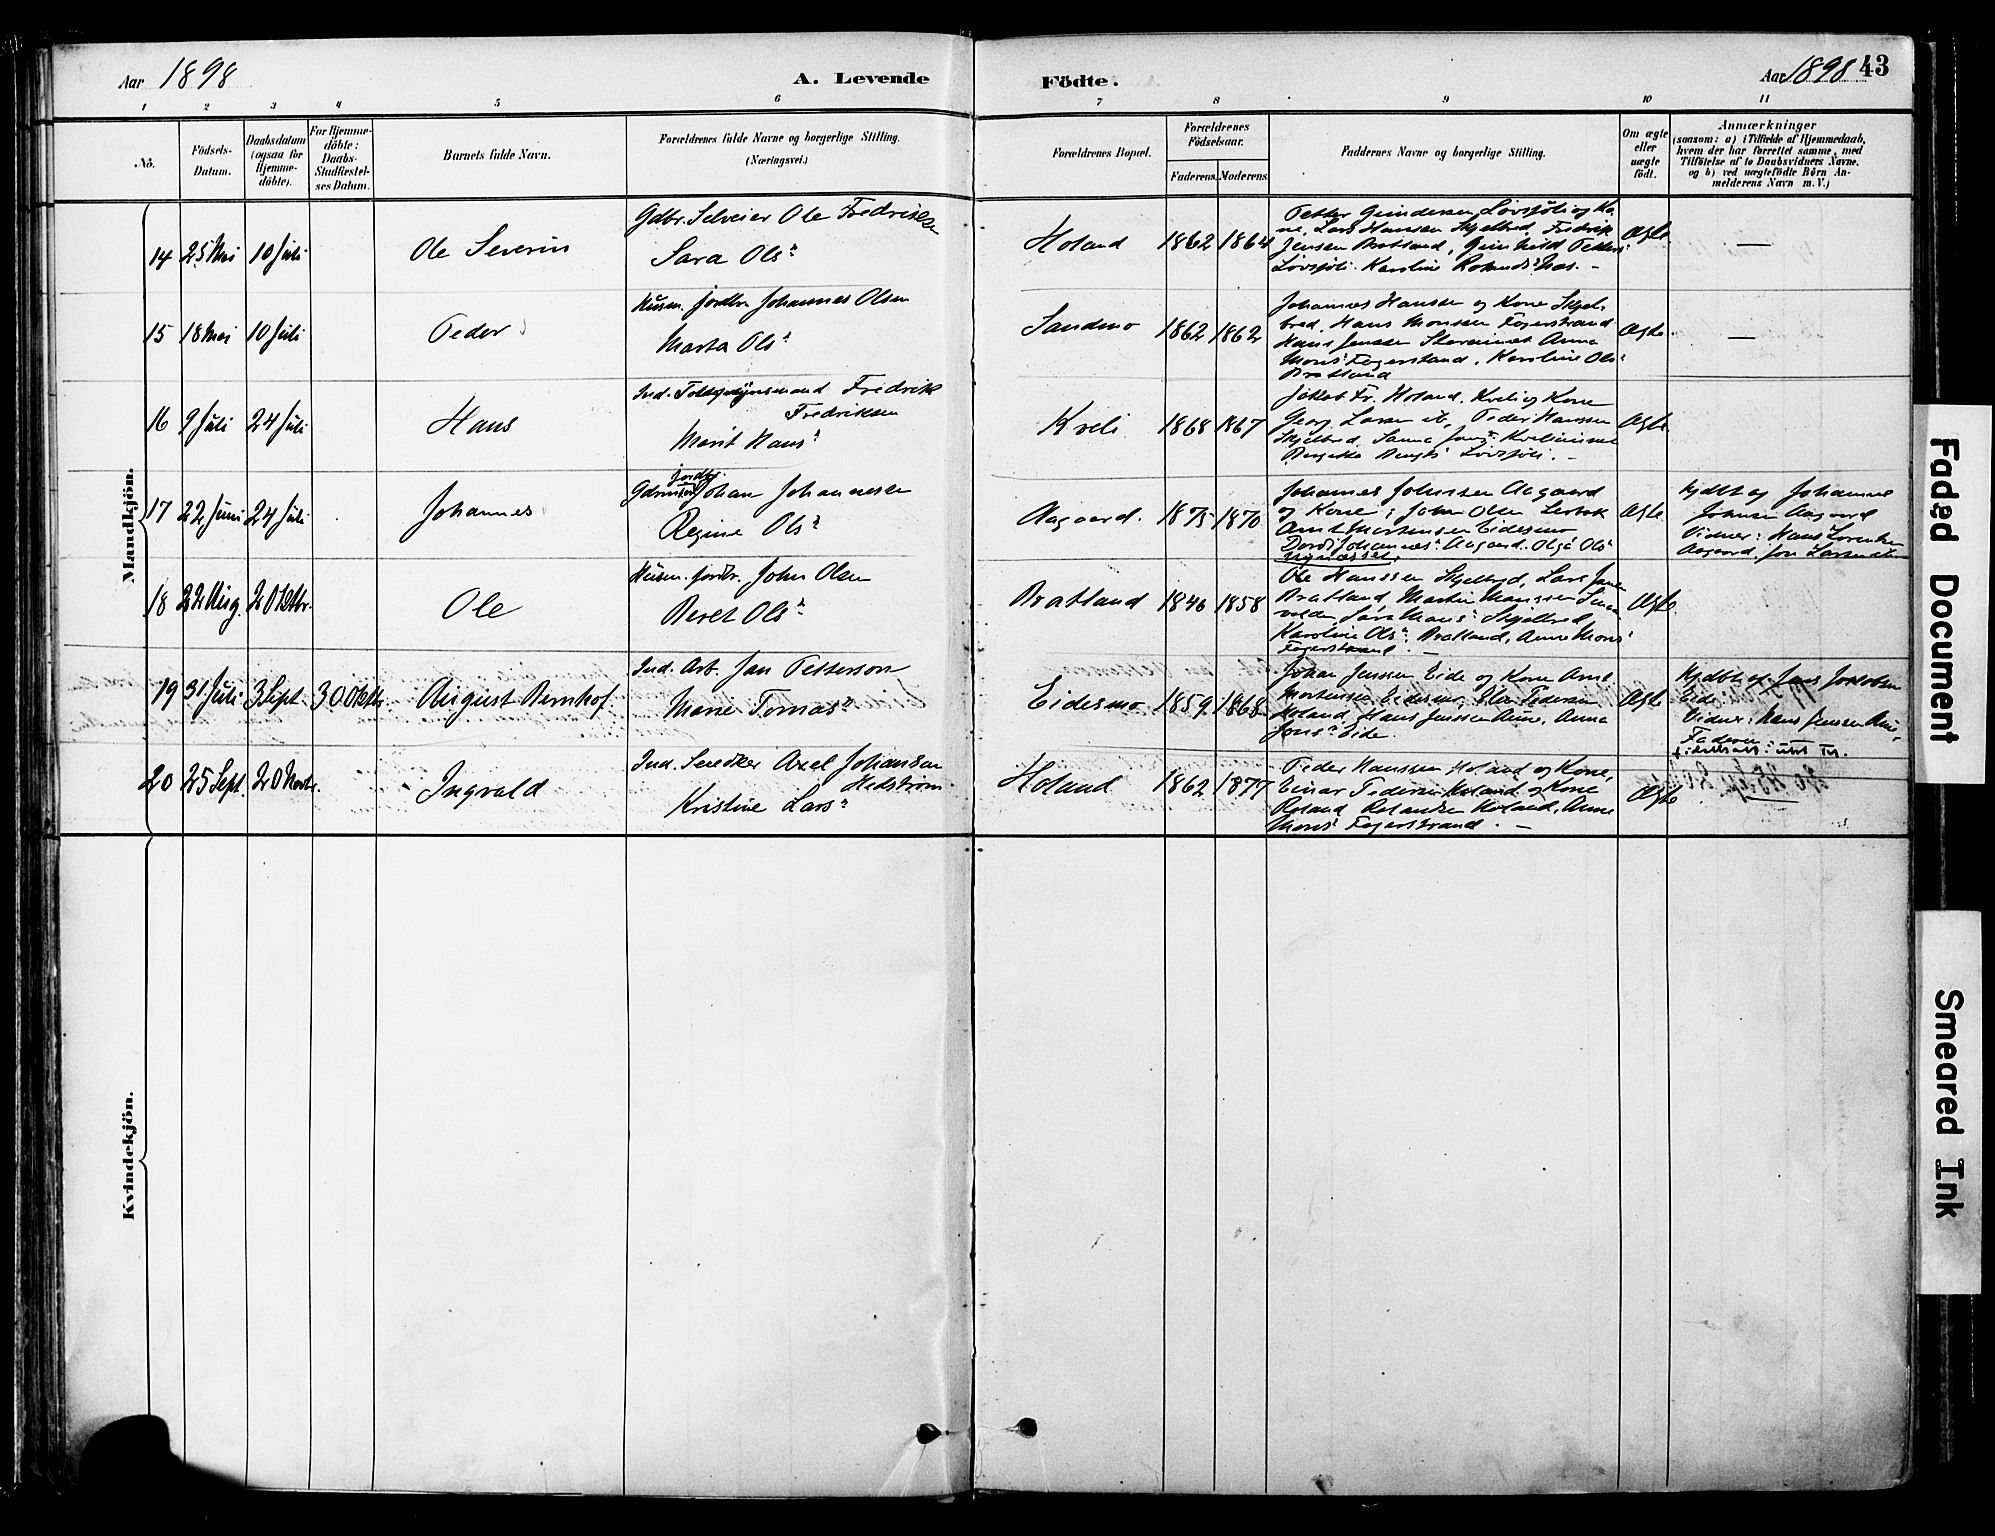 Aar 1898
A. Levende
Födte.
Aar 1898
43
1 2 3 4 5 6 7 8 9 10 11
No.
Födsels-
Datum.
Daabsdatum
(ogsaa for
Hjemme-
döbte).
For Hjemme-
döbte:
Daabs-
Stadfæstel-
ses Datum.
Barnets fulde Navn.
Forældrenes fulde Navne og borgerlige Stilling.
(Næringsvei.)
Forældrenes Bopæl.
Forældrenes
Födselsaar.
Faderens. Moderens.
Faddernes Navne og borgerlige Stilling.
Om ægte
eller
uægte
födt.
Anmærkninger
(saasom: a) i Tilfælde af Hjemmedaab,
hvem der har forrettet samme, med
Tilföielse af to Daabsvidners Navne,
og b) ved uægtefödte Börn An-
melderens Navn m. V.)
Mandkjön.
14 25 Mai 10 Juli
Ole Severin
Gdbr. Selveier Ole Fredriksen
Sara Olsn
Holand
1862 1864
ne, Lars Hanssen Skjelbred, Fredrik
Jensen Bratland,
Ægte
—
15 18 Mai 10 Juli
Peder
Husm. jordbr. Johannes Olsen
Marta Olsn
Sandmo
1862 1862
Johannes Hanssen og Kone Skjel-
bred, Hans Monssen Fagerstrand
Hans Jenssen
Anna
Fagerstrand, Karoline Olsn
Bratland
Ægte
—
16 9 Juli 24 Juli
Hans
Ind. Fredrik
Fredriksen
Marit Hansn
Kveli
1868 1867
Jakob Fr. Holand, Kveli og Kone
Georg Larsen ib, Peder Hanssen
Skjelbred,
Ægte
17 22 Juni 24 Juli
Johannes
jordbr.
Johan Johannesen
Regine Olsn
Aagaard.
1875 1870
Johannes Johnsen Aagaard
og Kone, John Olsen
Arnt Mortensen Eidesmo
Aagaard. Olga Olsn
Ægte
Hjdbt af Johannes
Johnsen Aagaard
Vidner: Hans Lorentsen
Aagaard, Jon Larsen
18 22 Aug. 2 Oktbr.
Ole
Husm. jordbr. John Olsen
Beret Olsn
Bratland
1846 1858
Ole Hanssen Skjelbred, Lars
Bratland, Martin
Skjelbred
Karoline Olsn Bratland, Anne Monsn
Fagerstrand. —
Ægte
19 31 Juli 3 Sept. 30 Oktbr.
August Bernhof
Ind. Arb. Jan Petterson
Marie Tomasn
Eidesmo
1859 1868
Johan Jenssen Eide og Kone, Arnt
Mortensen Eidesmo, Pedersen
Holand, Hans Jenssen Aune, Anna
Jonsn Eide.
Ægte
Hjdbt af Jens Jakobsen
Eide
Vidner: Hans Jenssen Aune,
Faderen
20 25 Sept. 20 Novbr.
Ingvald
Ind. Snedker Axel Johansen
Hedström.
Kristine Larsn
Holand
1862 1877
Peder Hanssen Holand og Kone,
Einar Pedersen Holand og Kone
Roland Rolandsen Holand, Anne
Monsn Fagerstrand. —
Ægte
Kvindekjön.
Faded Document
Smeared Ink